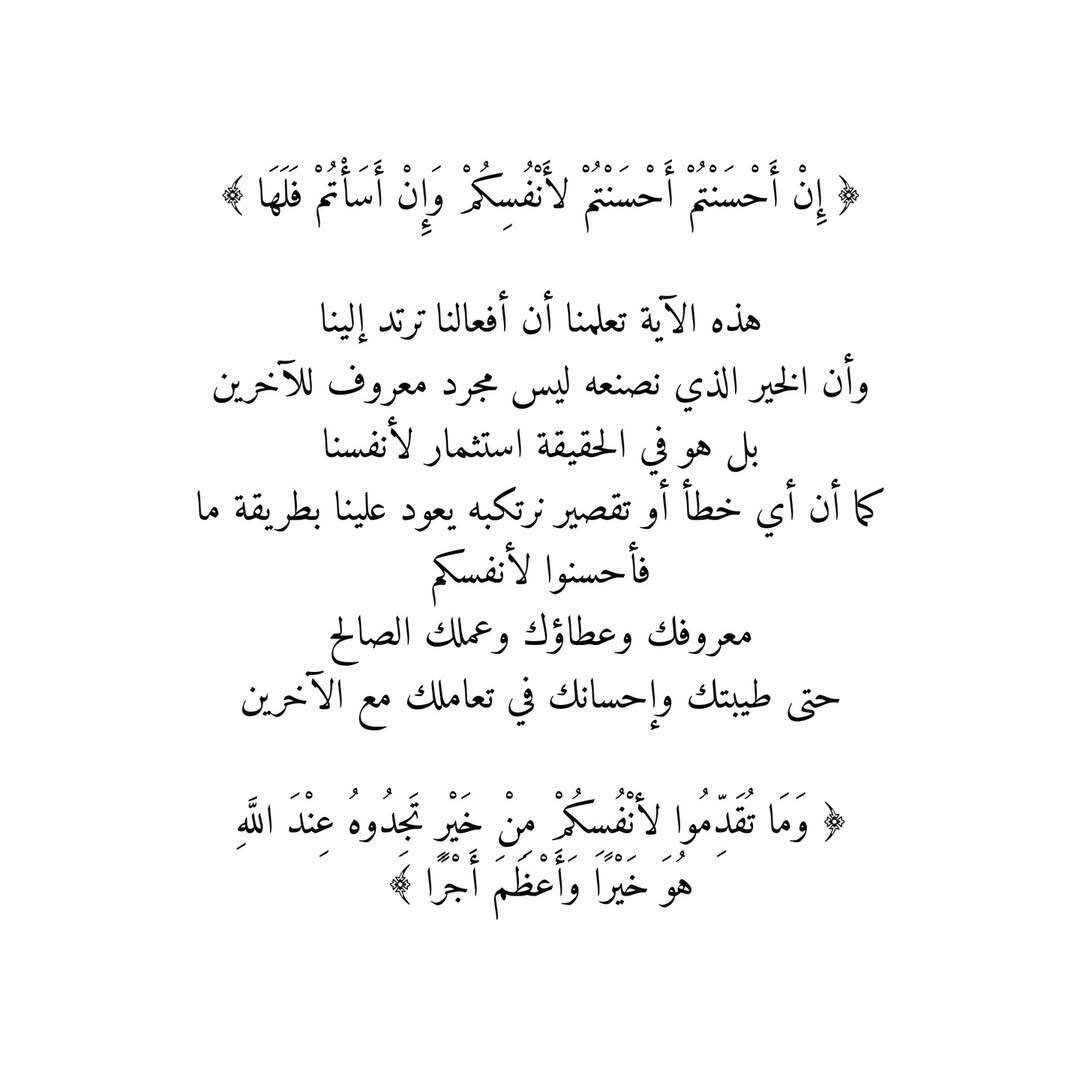 ﴿ إِنْ أَحْسَنْتُمْ أَحْسَنْتُمْ لأَنْفُسِكُمْ وَإِنْ أَسَأْتُمْ فَلَهَا ﴾
هذه الآية تعلمنا أن أفعالنا ترتد إلينا
وأن الخير الذي نصنعه ليس مجرد معروف للآخرين
بل هو في الحقيقة استثمار لأنفسنا
كما أن أي خطأ أو تقصير نرتكبه يعود علينا بطريقة ما
فأحسنوا لأنفسكم
معروفك وعطاؤك وعملك الصالح
حتى طيبتك وإحسانك في تعاملك مع الآخرين
﴿ وَمَا تُقَدِّمُوا لأنْفُسِكُمْ مِنْ خَيْرٍ تَجِدُوهُ عِنْدَ اللَّهِ
هُوَ خَيْرًا وَأَعْظَمَ أَجْرًا ﴾